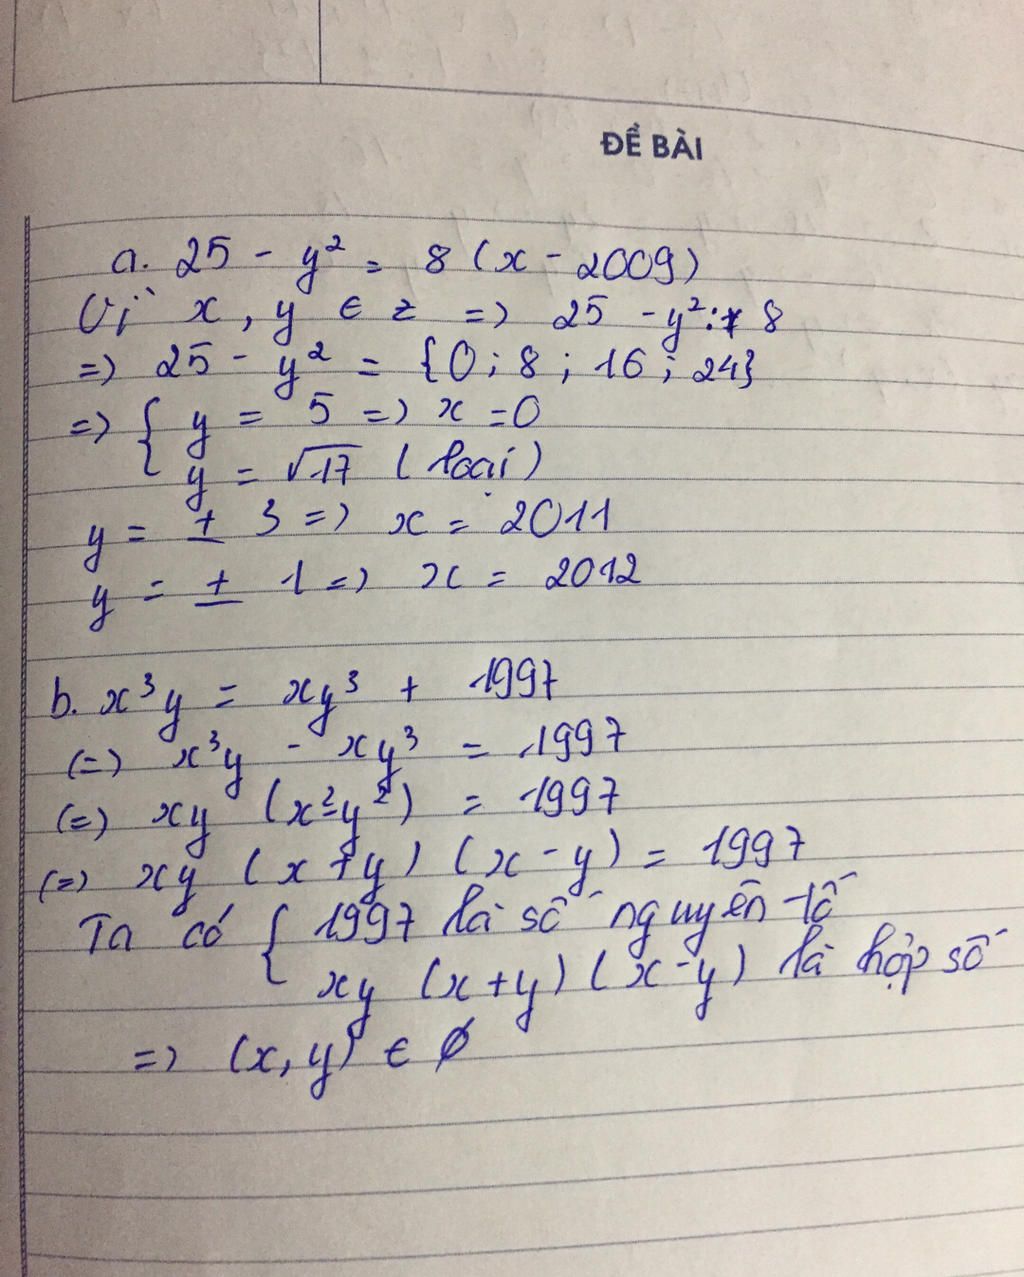 ĐỀ BÀI
a. 25 - y² = 8 (x - 2009)
Vì x, y ∈ z => 25 - y² ⋮ 8
=> 25 - y² = {0; 8; 16; 24}
=> { y = 5 => x = 0
y = √17 (loại)
y = ± 3 => x = 2011
y = ± 1 => x = 2012
b. x³y = xy³ + 1997
(=) x³y - xy³ = 1997
(=) xy (x² - y²) = 1997
(=) xy (x + y) (x - y) = 1997
Ta có { 1997 là số nguyên tố
xy (x + y) (x - y) là hợp số
=> (x, y) ∈ ∅